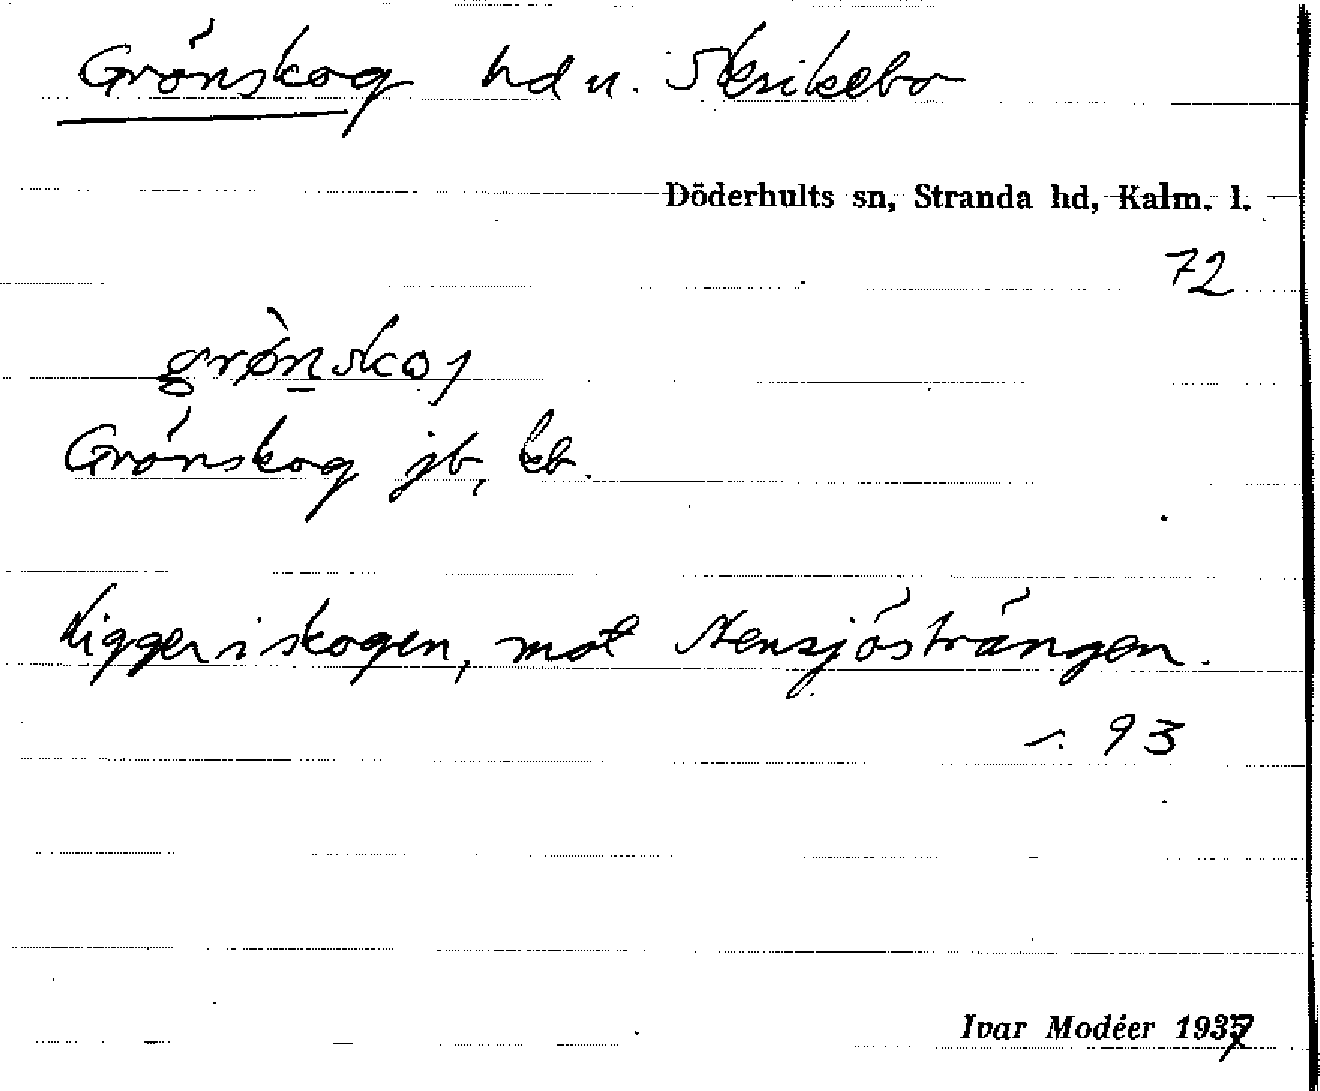 Grönskog hd u. Skrikebo
Döderhults sn, Stranda hd, Kalm. l.
72
grø̀nskoɡ
Grönskog jb, kb.
Ligger i skogen, mot Stensjösträngen.
93
Ivar Modéer 1937